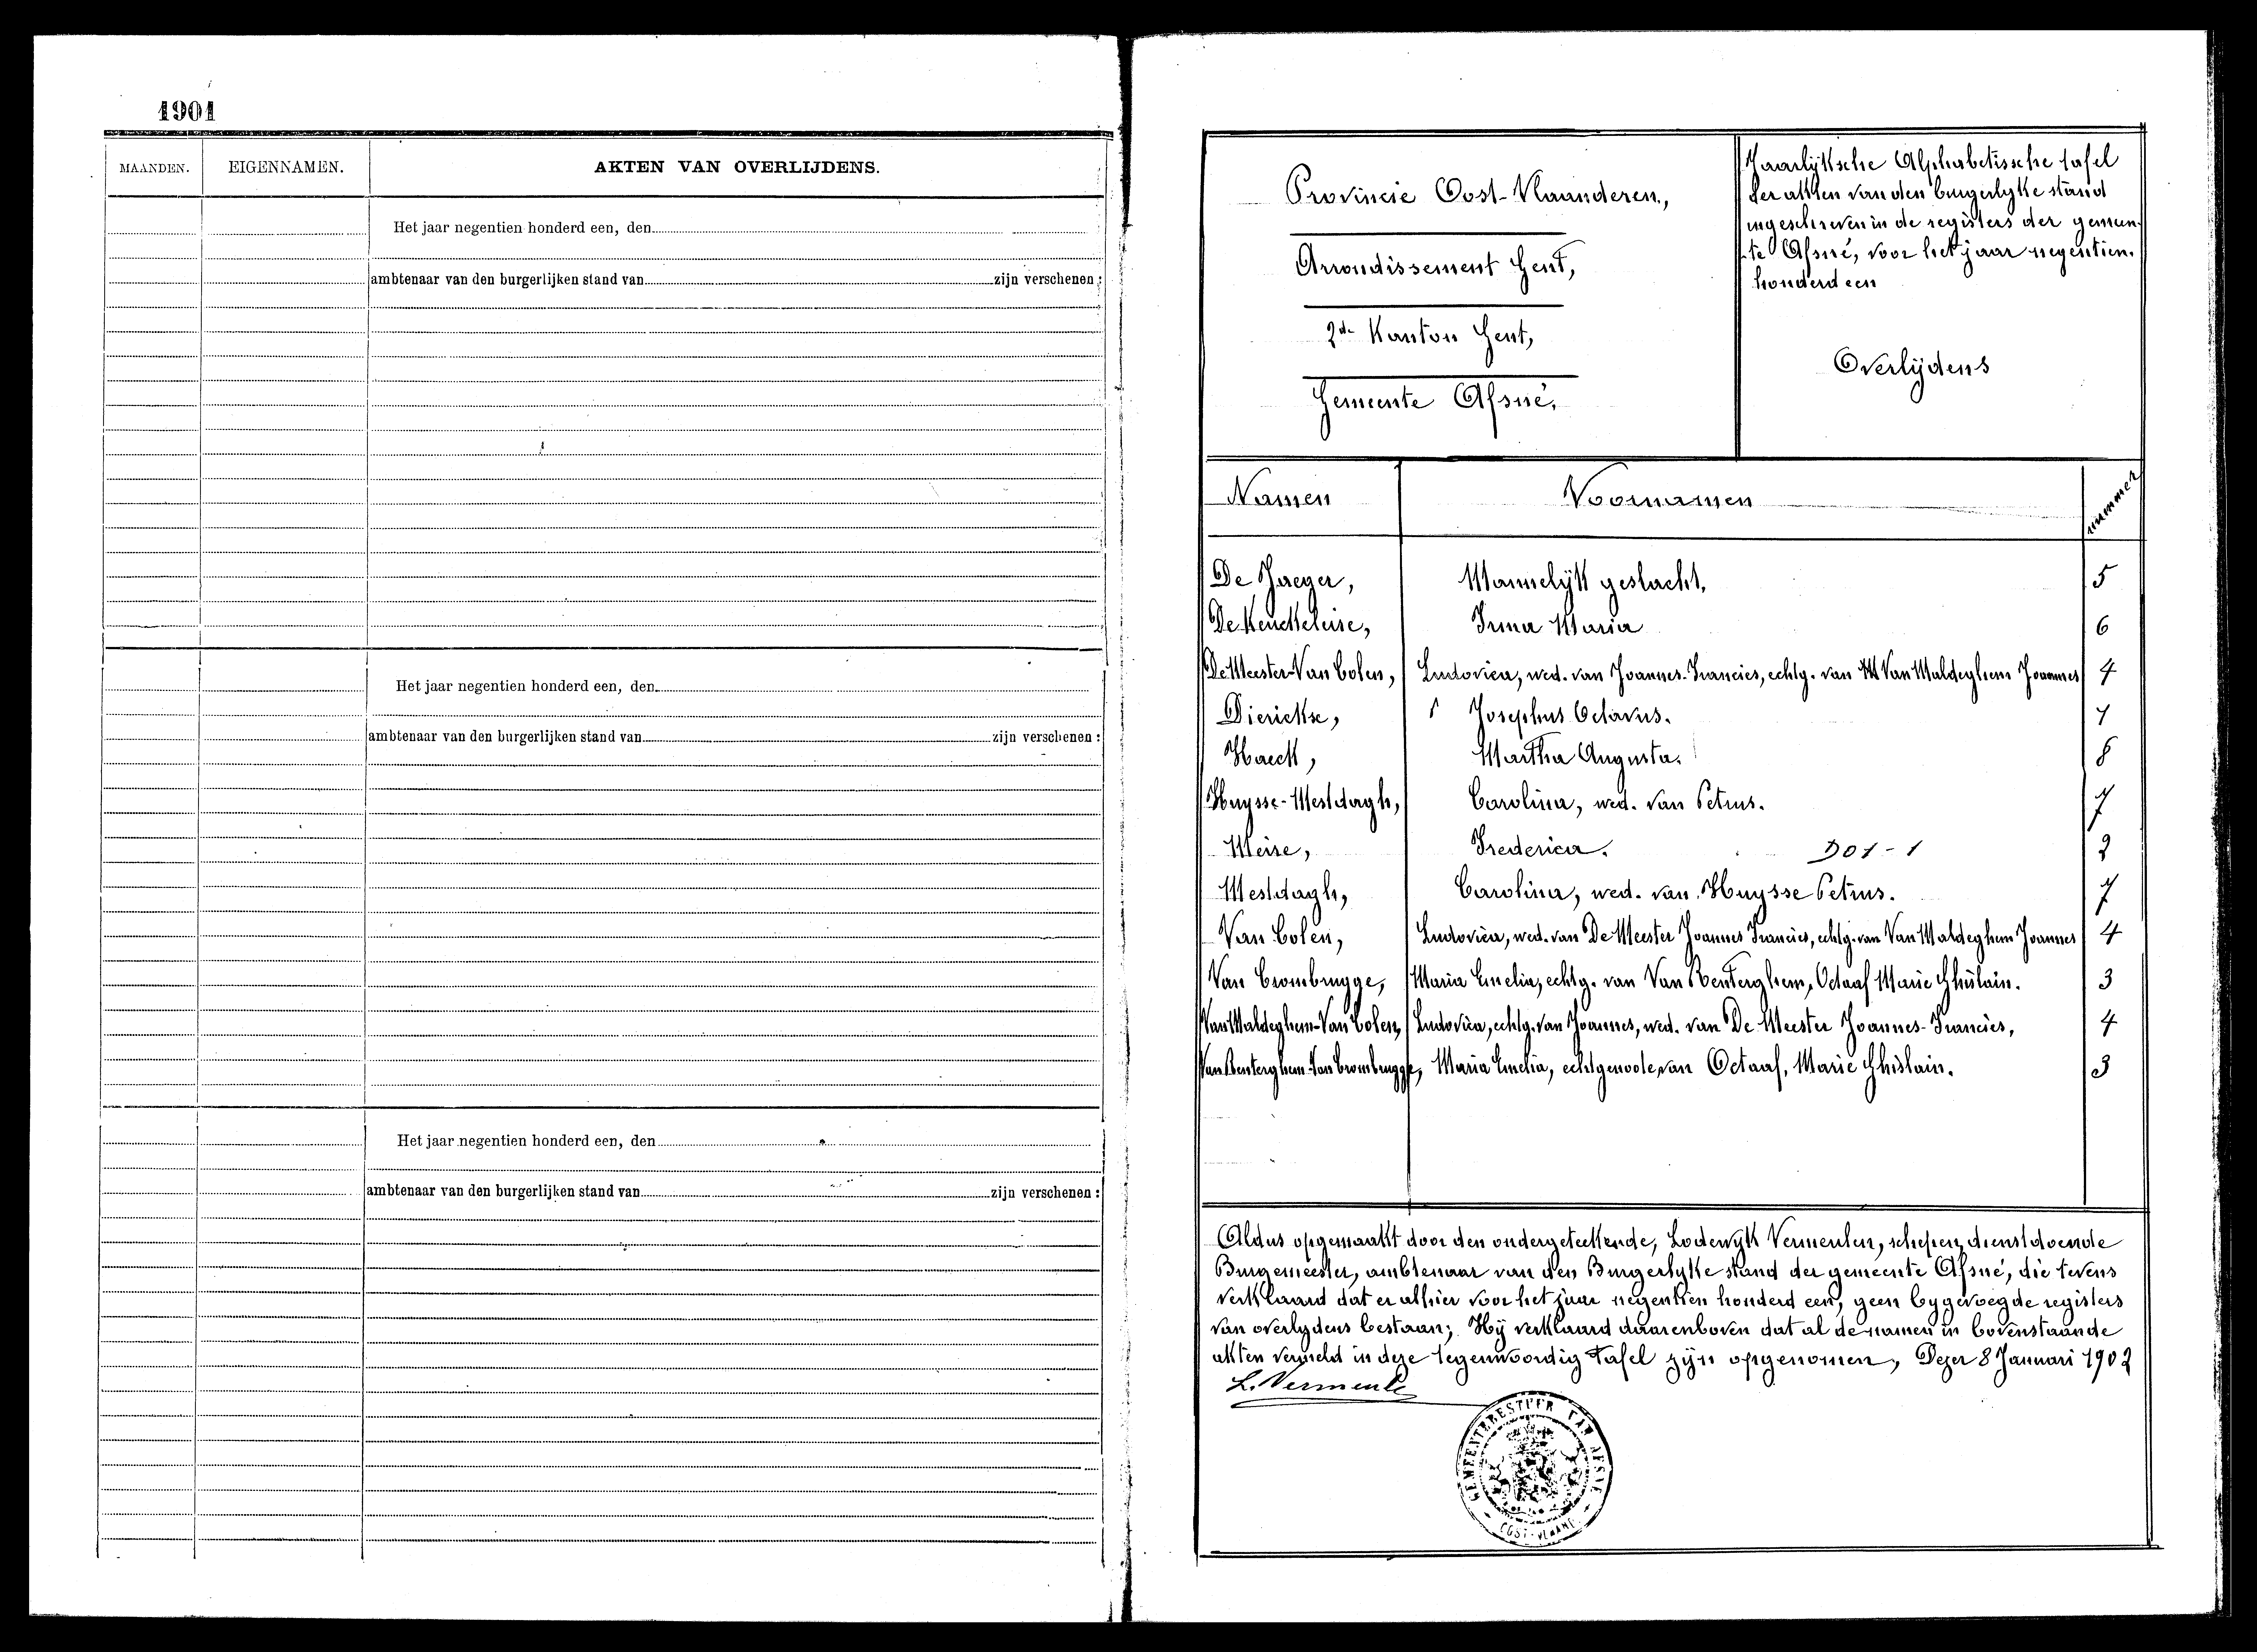 1901
MAANDEN. EIGENNAMEN. AKTEN VAN OVERLIJDENS.
Het jaar negentien honderd een, den
ambtenaar van den burgerlijken stand van zijn verschenen :
Het jaar negentien honderd een, den
ambtenaar van den burgerlijken stand van zijn verschenen :
Het jaar negentien honderd een, den
ambtenaar van den burgerlijken stand van zijn verschenen :
Provincie Oost-Vlaanderen,
Arrondissement Gent,
2de Kanton Gent,
Gemeente Afsné,
Jaarlijksche Alphabetissche tafel
der akten van den burgerlyke stand
ingeschreven in de registers der gemeen-
te Afsné, voor het jaar negentien.
honderd een
Overlijdens
Namen Voornamen nummer
De Jaeger, Mannelijk geslacht, 5
De Keuckeleire, Irma Maria 6
De Meester-Van Colen, Ludovica, wed. van Joannes-Francies, echtg. van Van Maldeghem Joannes 4
Dierickse, Josephus Octavus. 1
Haeck, Martha Augusta. 8
Huysse-Mestdagh, Carolina, wed. van Petrus. 7
Meire, Frederica. D01-1 2
Mestdagh, Carolina, wed. van Huysse Petrus. 7
Van Colen, Ludovica, wed. van De Meester Joannes Francies, echtg. van Van Maldeghem Joannes 4
Van Crombrugge, Maria Emelia, echtg. van Van Renterghem, Octaaf Marie Ghislain. 3
Van Maldeghem-Van Colen, Ludovica, echtg. van Joannes, wed. van De Meester Joannes-Francies, 4
Van Renterghem-Van Crombrugge, Maria Emelia, echtgenoote van Octaaf, Marie Ghislain. 3
Aldus opgemaakt door den ondergeteekende, Lodewyk Vermeulen, schepen, dienstdoende
Burgemeester, ambtenaar van den Burgerlyke stand der gemeente Afsné, die tevens
verklaard dat er alhier voor het jaar negentien honderd een, geen bygevoegde registers
van overlydens bestaan; Hij verklaard daarenboven dat al de namen in bovenstaande
akten vermeld in deze tegenwoordig tafel zijn opgenomen, Dezer 8 Januari 1902
L. Vermeule
GEMEENTEBESTUUR VAN AFSNÉ
OOST-VLAAND.